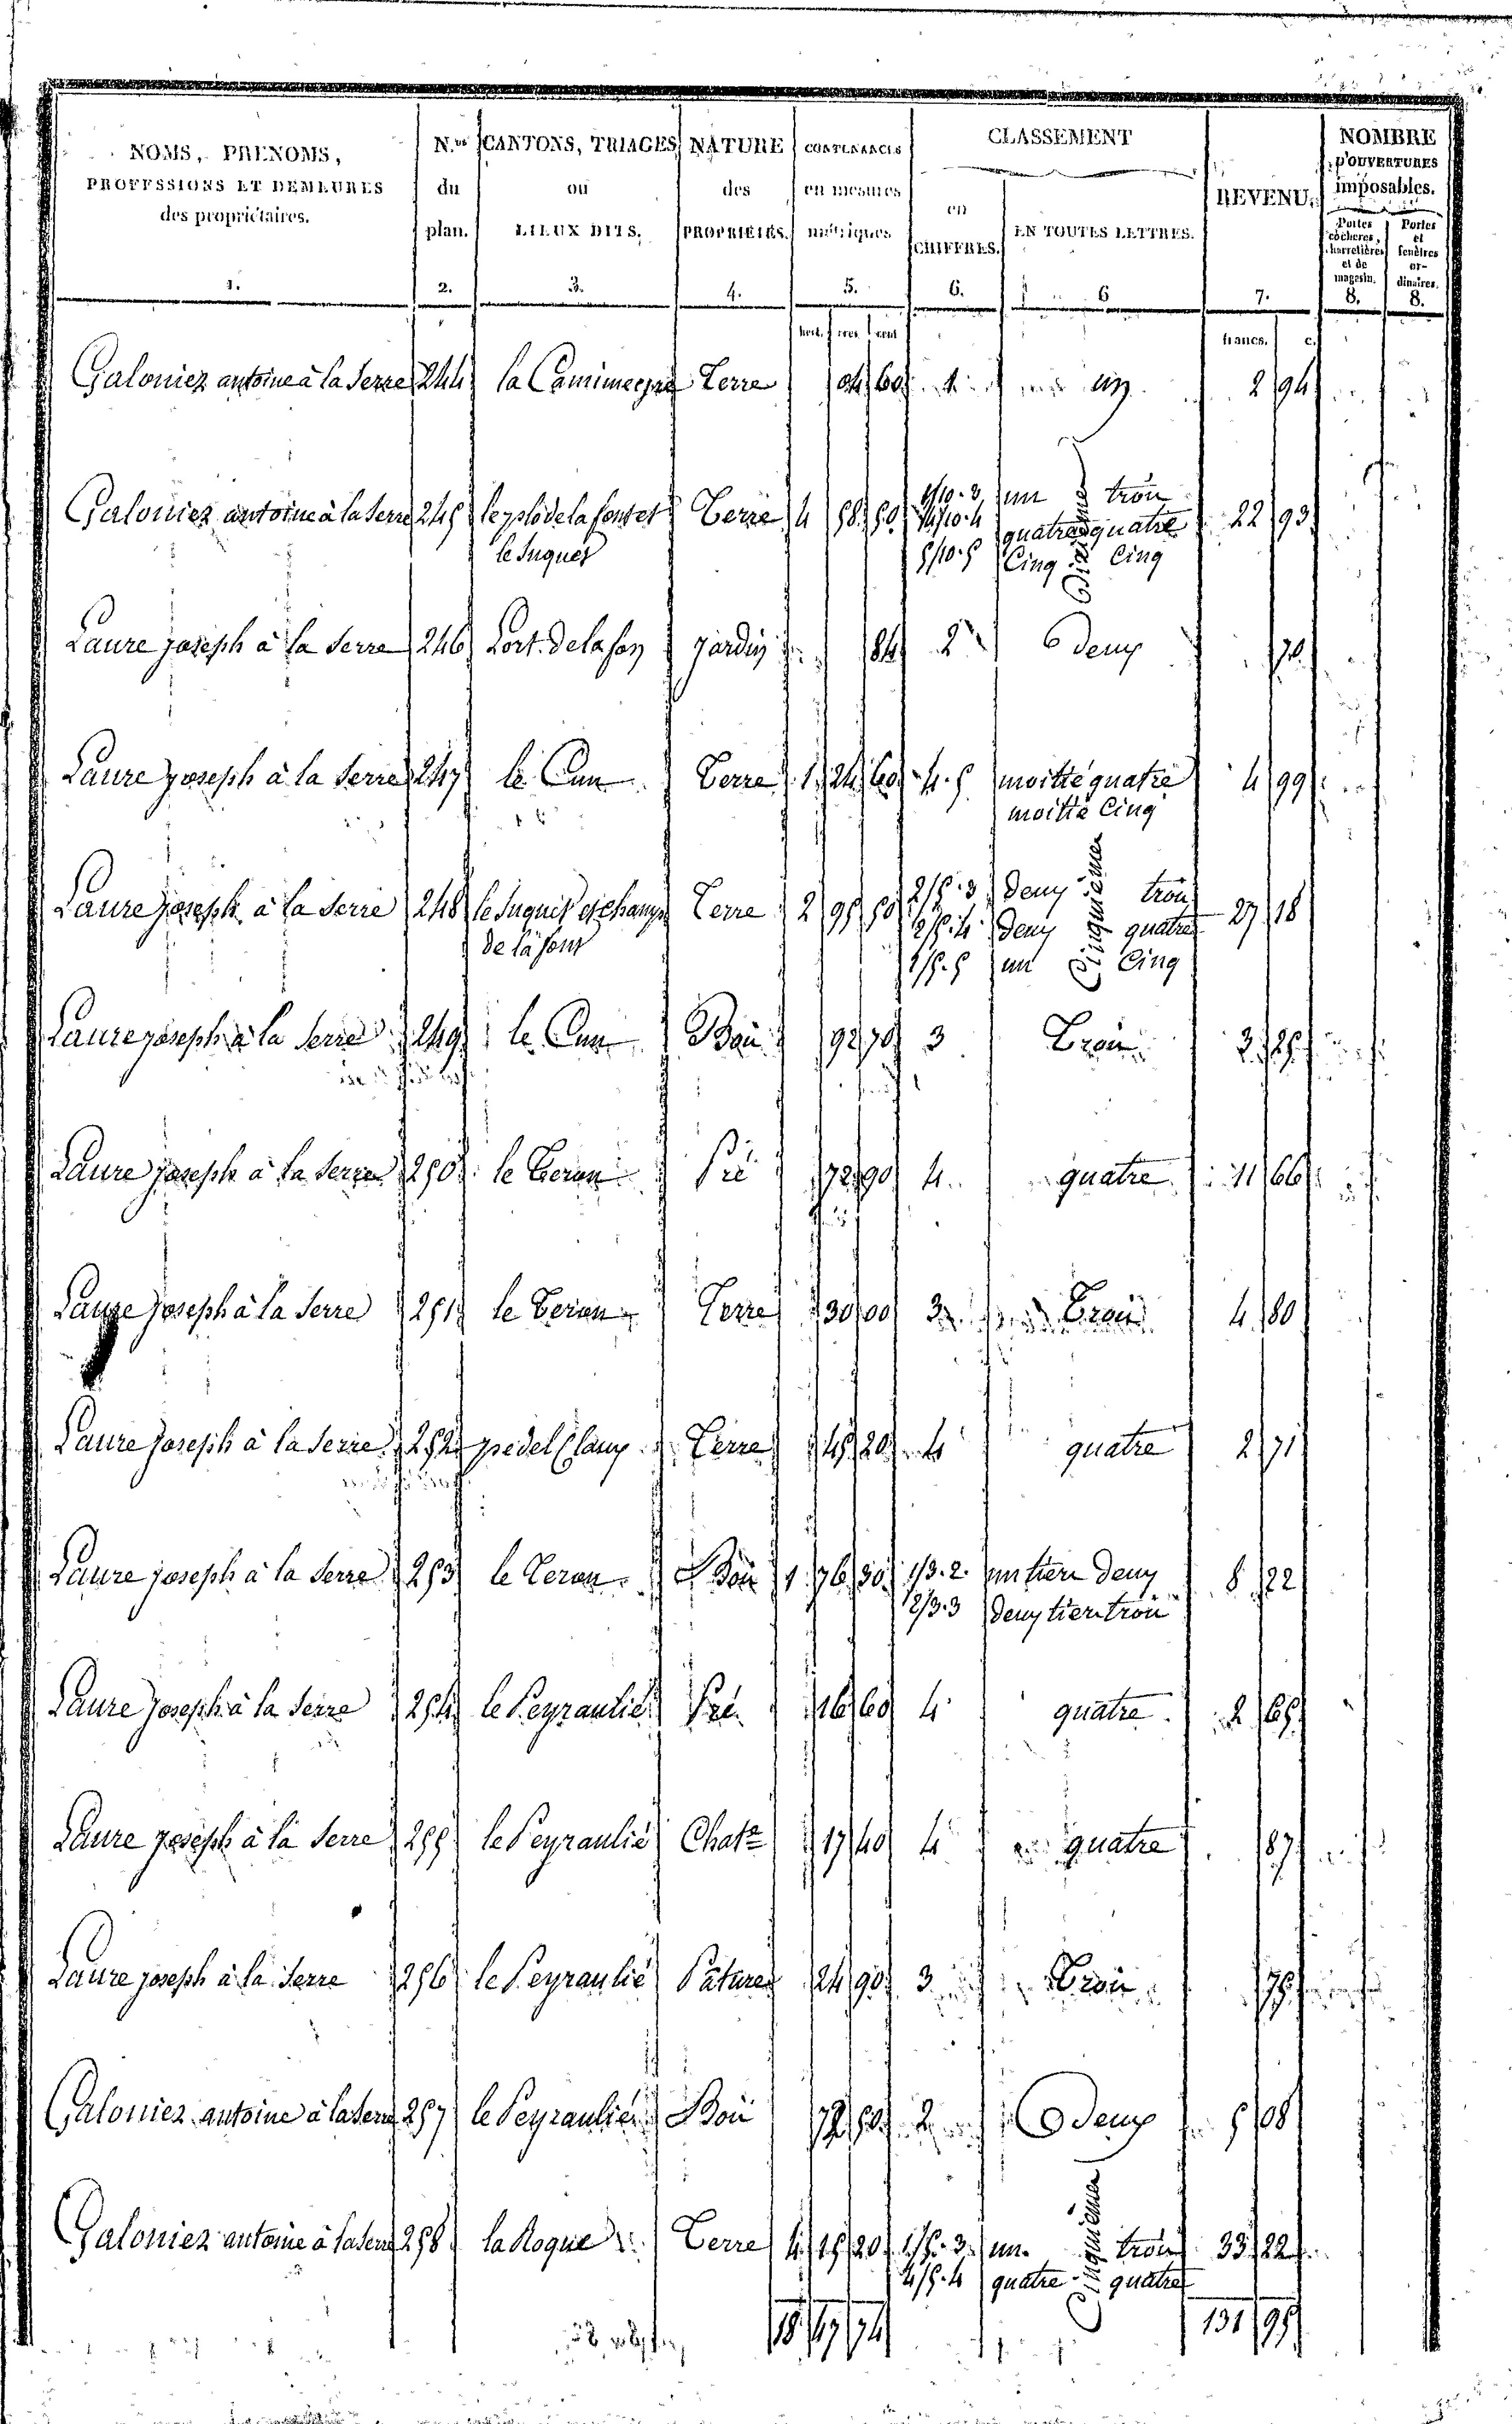 NOMS, PRENOMS, PROFESSIONS ET DEMEURES des propriétaires. | N.os du plan. | CANTONS, TRIAGES ou LIEUX DITS. | NATURE des PROPRIÉTÉS. | CONTENANCES en mesures métriques | CLASSEMENT en CHIFFRES. | EN TOUTES LETTRES. | REVENU. | NOMBRE D'OUVERTURES imposables. Portes cochères, charretières et de magasin. | Portes et fenêtres ordinaires.
1. | 2. | 3. | 4. | 5. | 6. | 6 | 7. | 8. | 8.
hect. | ares | cent | francs. | c.
Galoniez antoine à la Serre | 244 | la | Terre | 04 | 60 | 1 | un | 2 | 94
Galoniez antoine à la Serre | 245 | le plo de la | Terre | 4 | 58 | 50 | 1/10.3 | un dixieme trois | 22 | 93
le Suquet | 4/10.4 | quatre quatre
5/10.5 | Cinq Cinq
Laure joseph à la Serre | 246 | Lort de la fon | jardin | 84 | 2 | deux | 70
Laure joseph à la Serre | 247 | le Cun | Terre | 1 | 24 | 60 | 4.5 | moitié quatre | 4 | 99
moitié Cinq
Laure joseph à la Serre | 248 | le Suquet et champ | Terre | 2 | 95 | 50 | 2/5.3 | deux Cinquieme trois | 27 | 18
de la fon | 2/5.4 | deux quatre
1/5.5 | un Cinq
Laure joseph à la Serre | 249 | le Cun | Bois | 92 | 70 | 3 | Trois | 2 | 25
Laure joseph à la Serre | 250 | le Teron | Pré | 72 | 90 | 4 | quatre | 11 | 66
Laure joseph à la Serre | 251 | le Teron | Terre | 30 | 00 | 3 | Trois | 4 | 80
Laure joseph à la Serre | 252 | | Terre | 45 | 20 | 4 | quatre | 2 | 71
Laure joseph à la Serre | 253 | le Teron | Bois | 1 | 76 | 30 | 1/3.2 | un tiers deux | 8 | 22
2/3.3 | deux tiers trois
Laure joseph à la Serre | 254 | le Peyraulié | Pré | 16 | 60 | 4 | quatre | 2 | 65
Laure joseph à la Serre | 255 | le Peyraulié | Chat.e | 17 | 40 | 4 | quatre | 87
Laure joseph à la Serre | 256 | le Peyraulié | Pature | 24 | 90 | 3 | Trois | 75
Galoniez antoine à la Serre | 257 | le Peyraulié | Bois | 72 | 50 | 2 | deux | 5 | 08
Galoniez antoine à la Serre | 258 | la Roque | Terre | 4 | 15 | 20 | 1/5.3 | un Cinquieme trois | 33 | 22
4/5.4 | quatre quatre
18 | 47 | 74 | 131 | 95